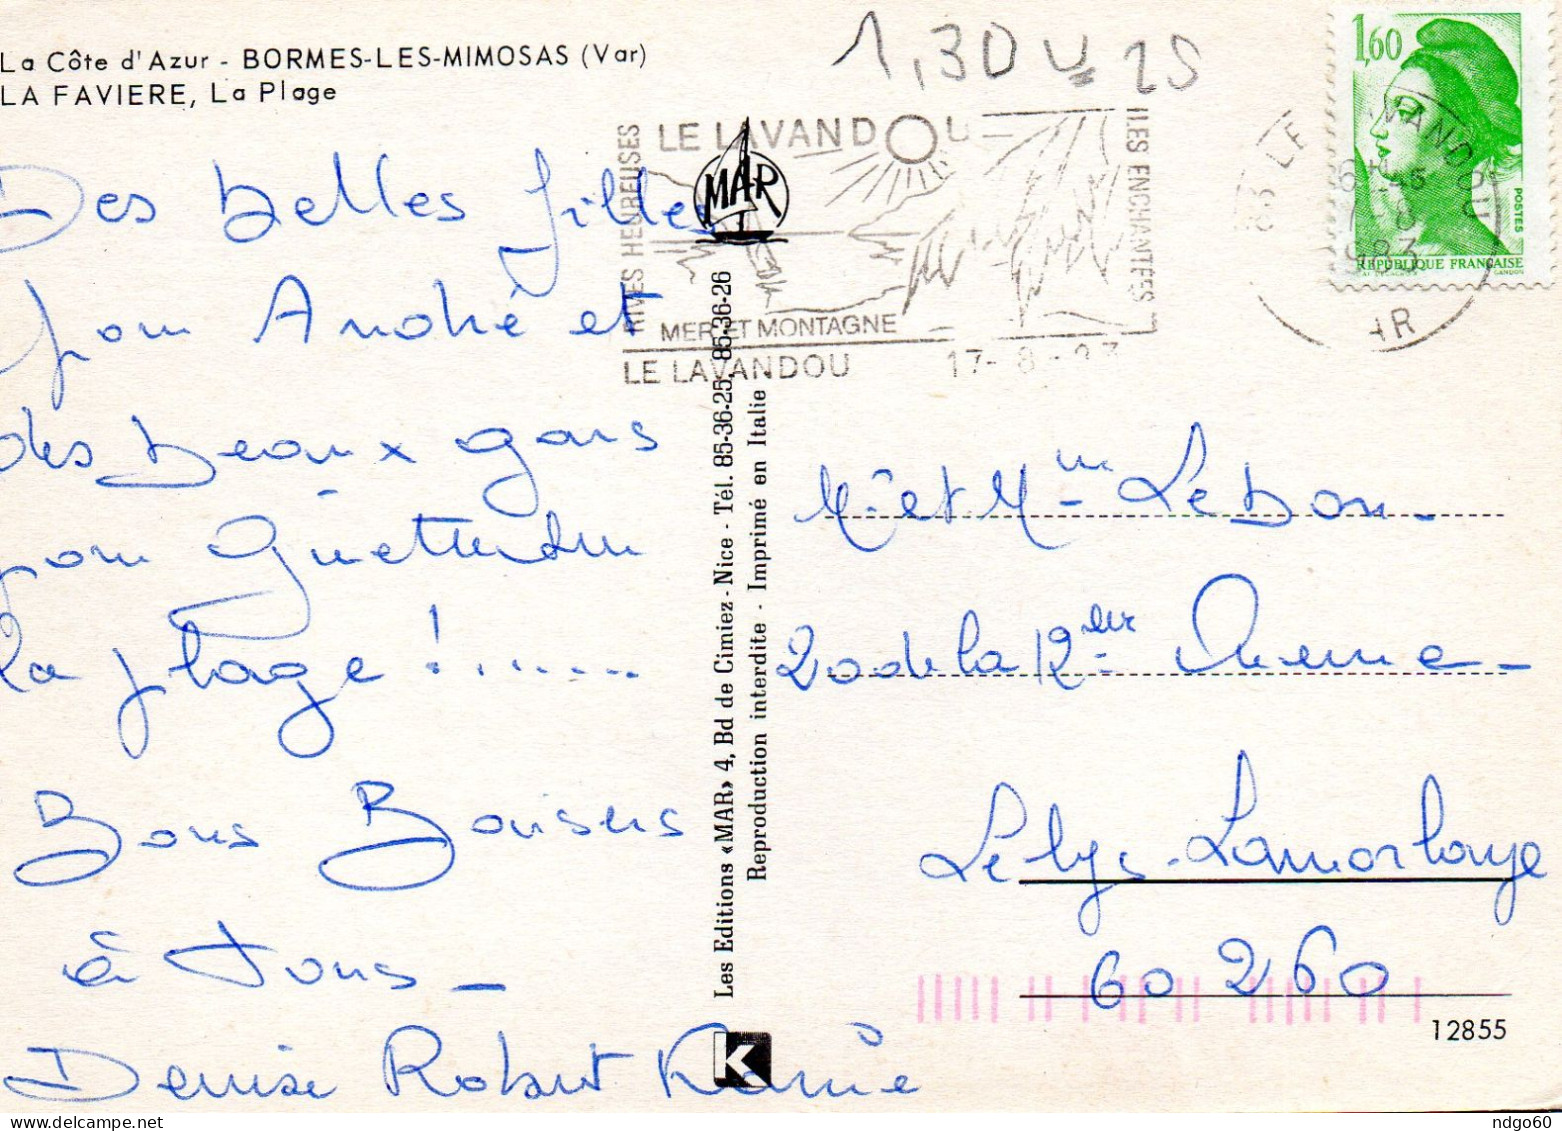 La Côte d'Azur - BORMES-LES-MIMOSAS (Var)
LA FAVIERE, La Plage
1,30 25
1,60
POSTES
REPUBLIQUE FRANÇAISE
GANDON
83 LE LAVANDOU
16H45
17-8
1983
VAR
LE LAVANDOU
RIVES HEUREUSES
ILES ENCHANTÉES
MER ET MONTAGNE
LE LAVANDOU 17-8-83
MAR
Des belles filles
pour André et
des beaux gars
pour Guetter sur
la plage !......
Bons Baisers
à Tous -
Denise Robert
Les Editions «MAR» 4, Bd de Cimiez - Nice - Tél. 85-36-25, 85-36-26
Reproduction interdite - Imprimé en Italie
K
Mr et Mme Le Don
20 de la 12 Avenue
Le Lys - Lamorlaye
60260
12855
ndgo60